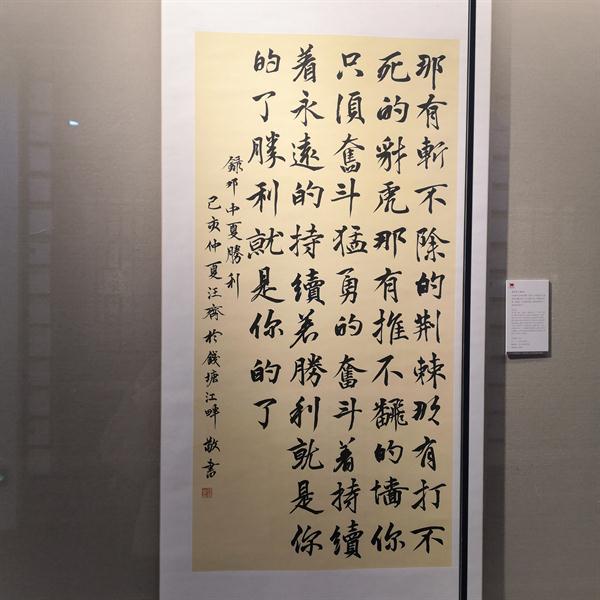 那有斬不除的荆棘那有打不
死的豺虎那有推不飜的墻你
只須奮斗猛勇的奮斗着持續
着永遠的持續着勝利就是你
的了勝利就是你的了
録邓中夏勝利
己亥仲夏汪齊於錢塘江畔敬書